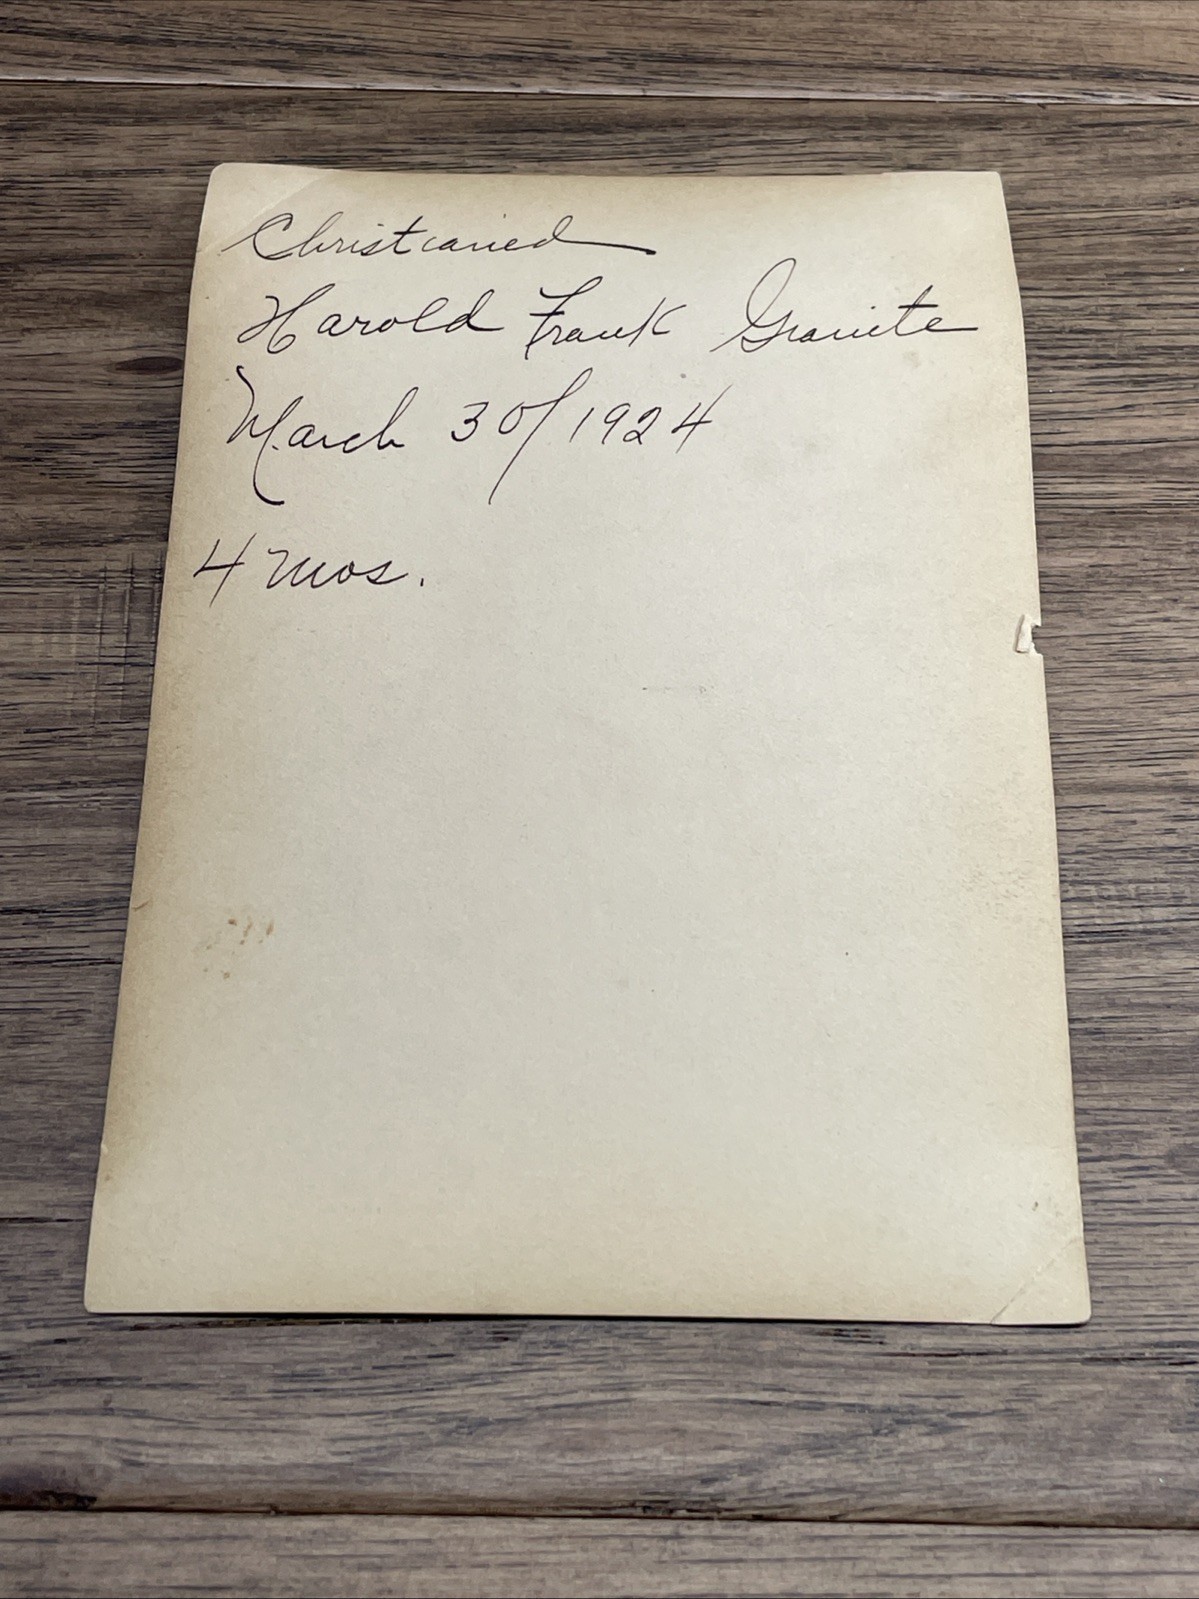 Christianed
Harold Frank Granite
March 30/1924
4 mos.